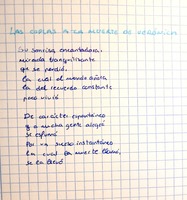 LAS COPLAS A LA MUERTE DE VERÓNICA
Su sonrisa encantadora,
mirada tranquilizante
que se perdió.
La cual el mundo añora
la del recuerdo constante
pero vivió
De carácter espontáneo
y a mucha gente alegró
se esfumó
Por un suceso instantáneo
la cual la muerte llamó,
se la llevó